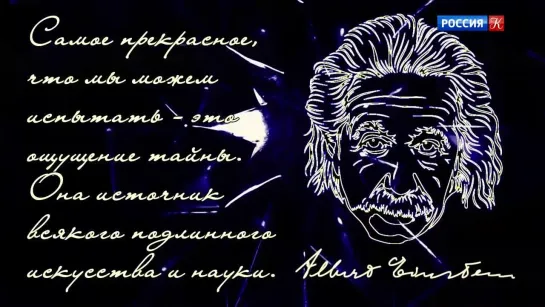 РОССИЯ К
Самое прекрасное,
что мы можем
испытать – это
ощущение тайны.
Она источник
всякого подлинного
искусства и науки.
Albert Einstein